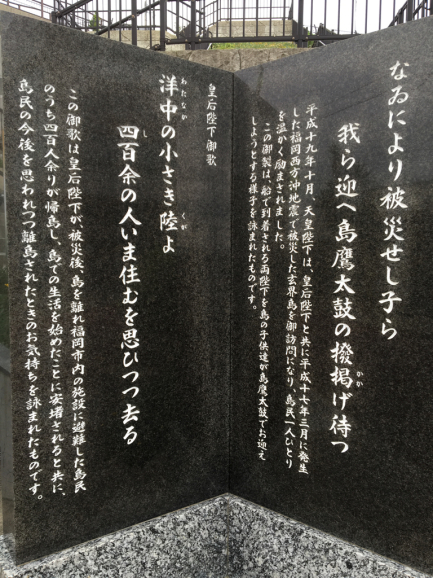 なゐにより被災せし子ら
我ら迎へ島鷹太鼓の撥掲げ待つ
かか
平成十九年十月、天皇陛下は、皇后陛下と共に平成十七年三月に発生
した福岡西方沖地震で被災した玄界島を御訪問になり、島民一人ひとり
を温かく励まされました。
この御製は、船で到着される両陛下を島の子供達が島鷹太鼓でお迎え
しようとする様子を詠まれたものです。
皇后陛下御歌
わたなか
くが
洋中の小さき陸よ
し
四百余の人いま住むを思ひつつ去る
この御歌は皇后陛下が被災後、島を離れ福岡市内の施設に避難した島民
のうち四百人余りが帰島し、島での生活を始めたことに安堵されると共に、
島民の今後を思われつつ離島されたときのお気持ちを詠まれたものです。